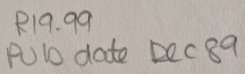 R19.99
Pub date Dec 89